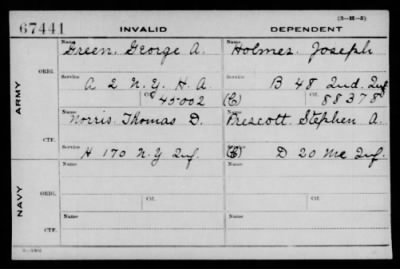 (3-111-3)
67441 INVALID DEPENDENT
Name Green, George A. Name Holmes, Joseph
ARMY
ORIG.
Service A 2 N.Y. H.A. Service B 48 Ind. Inf
Ctf. 45002 (C) Ctf. 88378
Name Norris, Thomas D. Name Prescott, Stephen A.
CTF.
Service H 170 N.Y. Inf. Service D 20 Me Inf.
NAVY
Name Name
ORIG.
Service Ctf. Service Ctf.
Name Name
CTF.
Service Service